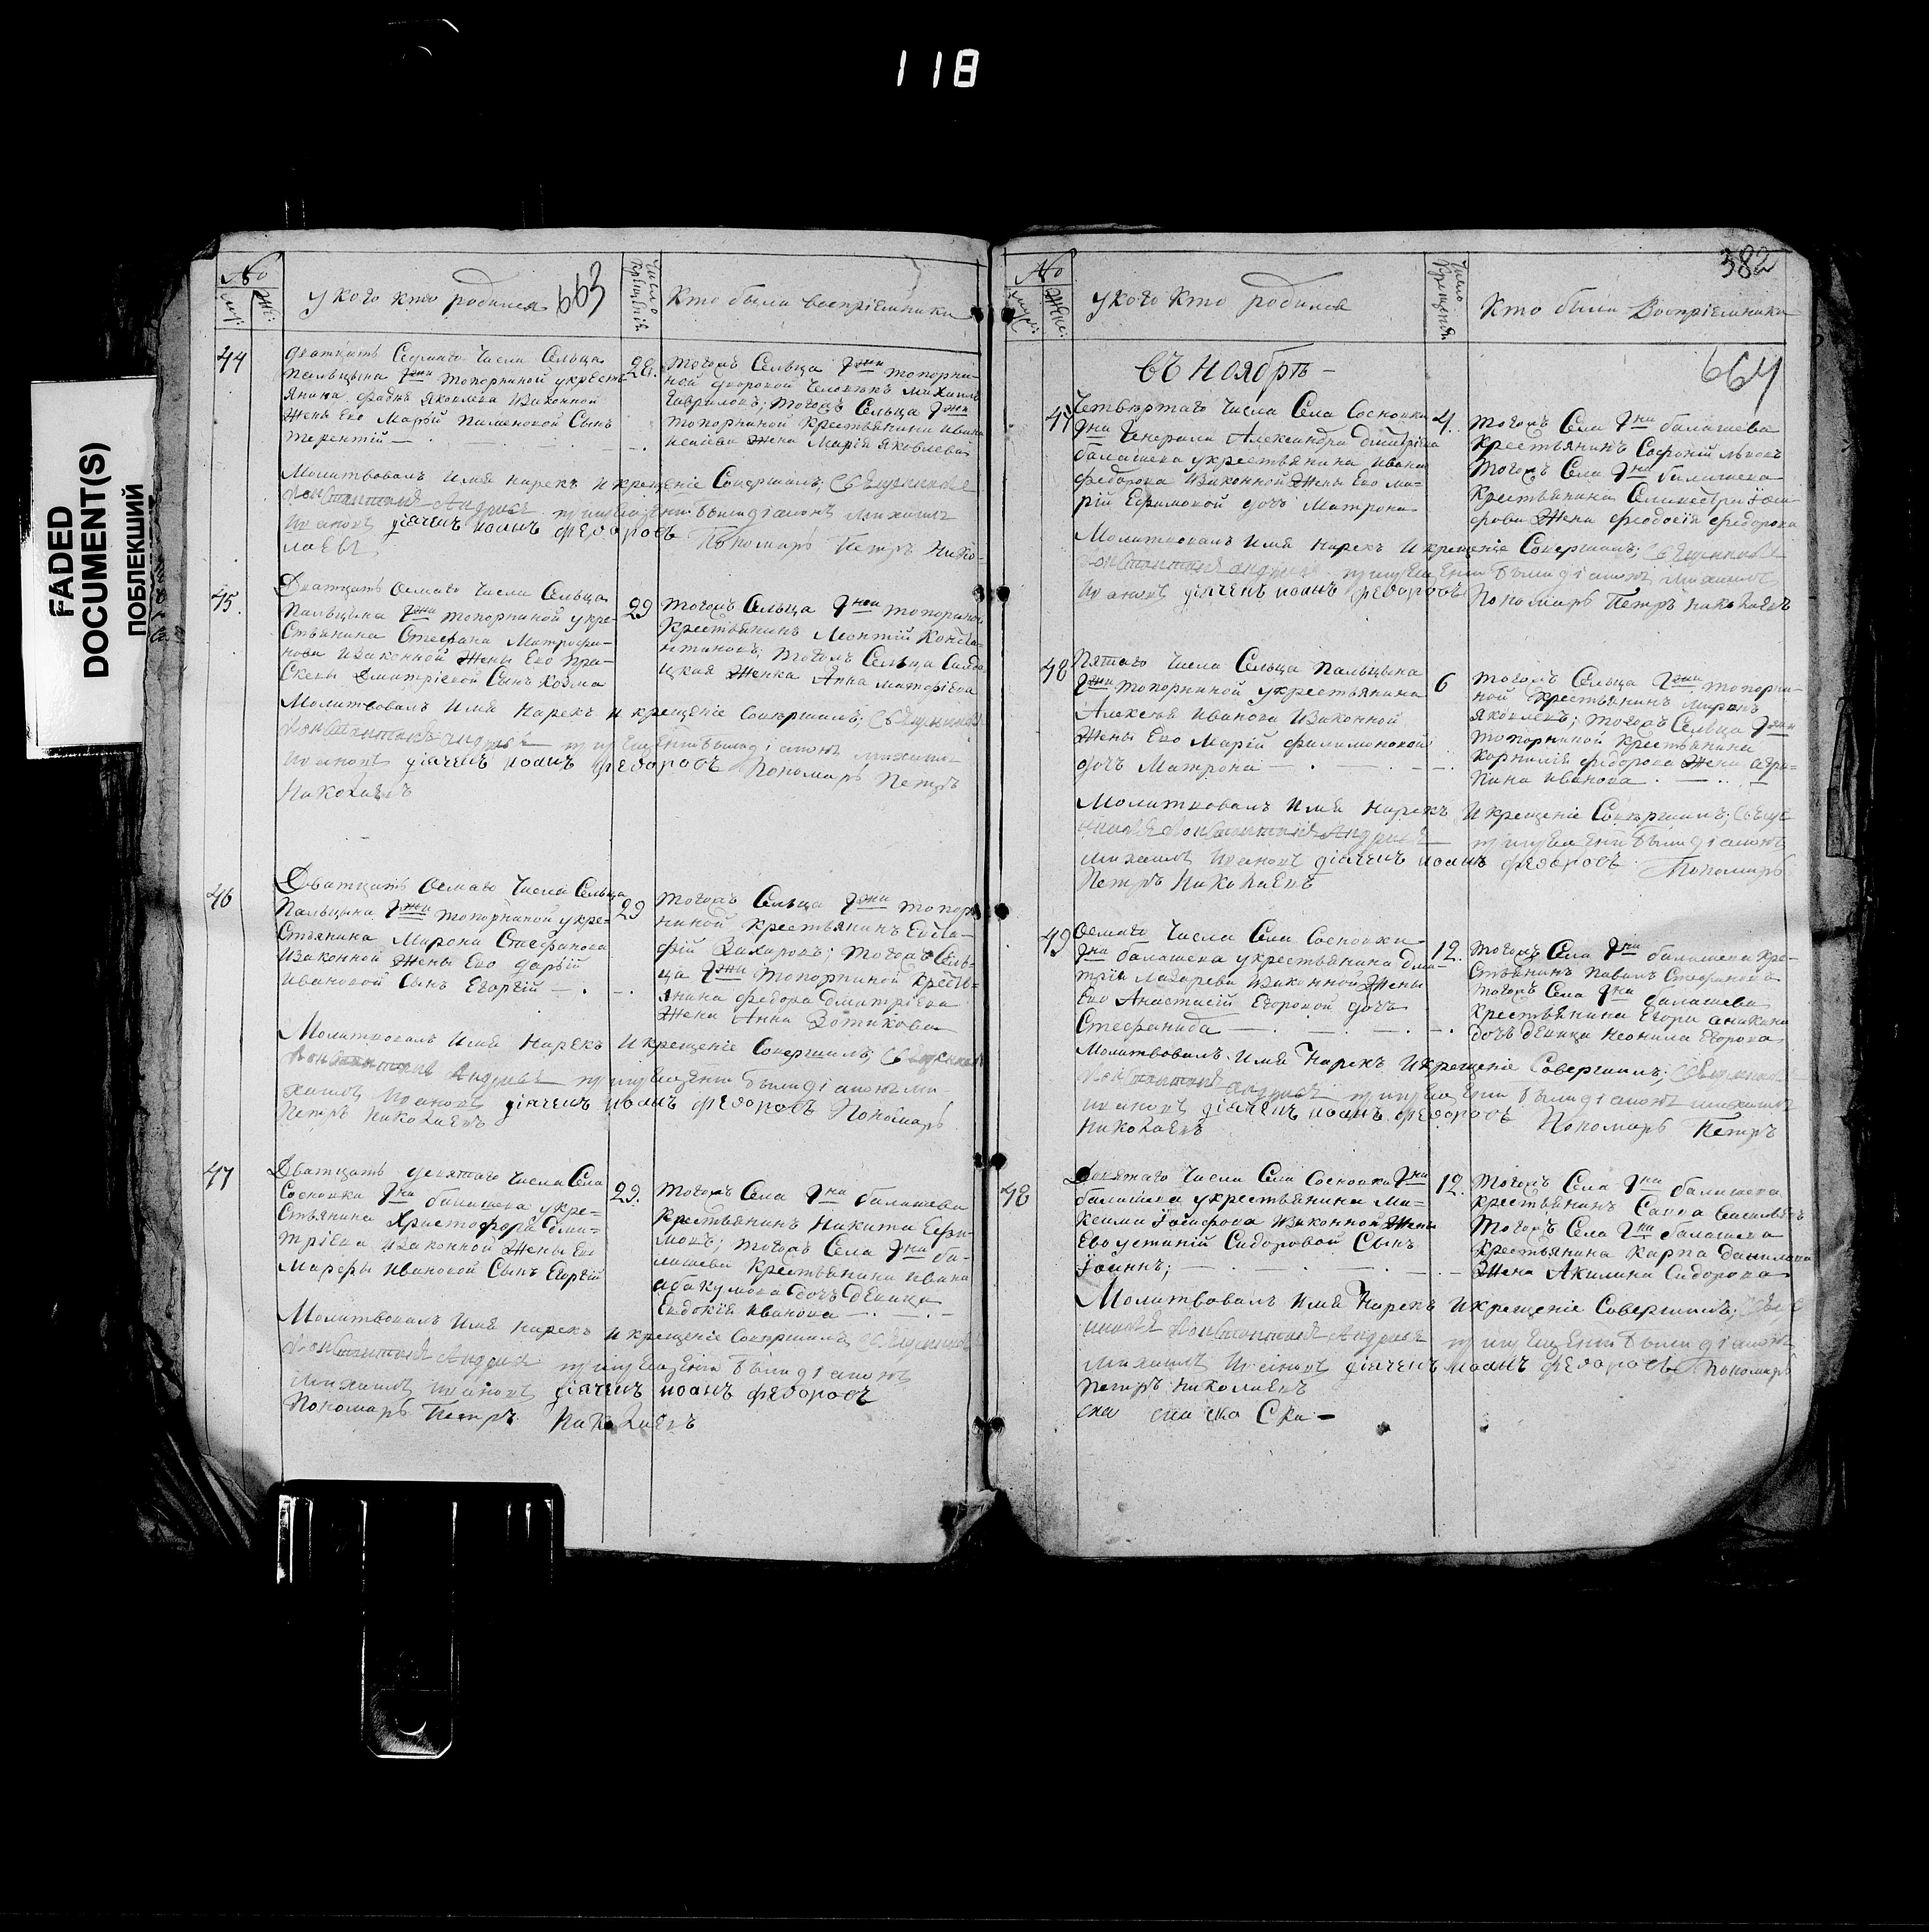 118
FADED
DOCUMENT(S)
ПОБЛЕКШИЙ
№
муж:
Же:
у кого кто родился
663
Число Крещенія
Кто были воспріемники
44
дватцать Седмаго числа Сельца
Пальцына Гжи топорниной у кресть
янина Якова законной
Жены Его Маріи Сынъ
терентій
28.
тогожъ Сельца Гжи топорни-
ной дворовой человекъ михаилъ
Гавриловъ; тогожъ Сельца Гжи
топорниной Крестьянина ивана
Жена Марія Яковлева
Молитвовалъ Имя нарекъ и крещеніе Совершалъ; Священникъ
Константинъ Андреевъ при крещеніи были діаконъ михаилъ
ивановъ дьячекъ иоанъ федоровъ Пономарь Петръ Нико-
лаевъ
45.
Дватцать Осмаго числа Сельца
Пальцына Гжи топорниной у кре-
Стьянина Стефана Митрофа-
нова законной Жены Его Пра-
Сковьи Дмитріевой Сынъ Козма
29
тогожъ Сельца Гжи топорниной
Крестьянинъ Леонтій Конста-
нтиновъ; тогожъ Сельца Солда
цкая Женка Анна
Молитвовалъ Имя Нарекъ и крещеніе Совершалъ; Священникъ
Константинъ андреевъ при крещеніи были діаконъ михаилъ
ивановъ дьячекъ иоанъ федоровъ Пономарь Петръ
Николаевъ
46
Дватцать Осмаго Числа Сельца
Пальцына Гжи топорниной у кре-
Стьянина Мирона Стефанова
законной Жены Его дарьи
ивановой Сынъ Егоргій
29
тогожъ Сельца Гжи топор
ниной Крестьянинъ Евста-
фій Захаровъ; тогожъ Сель-
ца Гжи топорниной Кресть-
янина федора Дмитріева
Жена Анна Зотикова
Молитвовалъ Имя Нарекъ и крещеніе Совершалъ; Священникъ
Константинъ Андреевъ при крещеніи были діаконъ ми-
хаилъ ивановъ дьячекъ иоанъ федоровъ Пономарь
Петръ Николаевъ
47
Дватцать девятаго числа Села
Сосновки Гна балашева у кре-
Стьянина Христофора Дми-
тріева законной Жены Его
Марфы ивановой Сынъ Егоргій
29.
тогожъ Села Гна балашева
Крестьянинъ Никита Ефи-
мовъ; тогожъ Села Гна ба-
лашева Крестьянина ивана
абакумова дочь девица
Евдокія иванова
Молитвовалъ Имя нарекъ и крещеніе Совершалъ Священникъ
Константинъ Андреевъ при крещеніи были діаконъ
михаилъ ивановъ дьячекъ иоанъ федоровъ
Пономарь Петръ Николаевъ
382
№
муж:
Жен:
у кого кто родился
Число Крещенія
Кто были Воспріемники
664
въ Ноябрѣ
47
Четвертаго числа Села Сосновки
Гна Генерала Александра дмитріева
балашева у крестьянина ивана
федорова законной Жены Его ма-
ріи Ефимовой дочь Матрона
4.
тогожъ Села Гна балашева
Крестьянинъ Софоній львовъ
тогожъ Села Гна балашева
Крестьянина Селивестра Іоси-
фова Жена феодосія федорова
Молитвовалъ Имя Нарекъ и крещеніе Совершалъ; Священникъ
Константинъ андреевъ при крещеніи были діаконъ михаилъ
ивановъ дьячекъ иоанъ федоровъ Пономарь Петръ николаевъ
48
Пятаго числа Сельца Пальцына
Гжи топорниной у крестьянина
Алексея иванова законной
Жены Его Маріи филимоновой
дочь Матрона
6
тогожъ Сельца Гжи топорни-
ной Крестьянинъ миронъ
Яковлевъ; тогожъ Сельца Гжи
топорниной Крестьянина
Корнилія федорова Жена агри-
пина иванова
Молитвовалъ Имя нарекъ и крещеніе Совершалъ; Свяще
нникъ Константинъ Андреевъ при крещеніи были діаконъ
михаилъ ивановъ дьячекъ иоанъ федоровъ Пономарь
Петръ Николаевъ
49
Осмаго Числа Села Сосновки
Гна балашева у крестьянина дми-
трія Лазарева законной Жены
Его Анастасіи Егоровой дочь
Стефанида
12.
тогожъ Села Гна балашева кре-
Стьянинъ Павелъ Стефановъ
тогожъ Села Гна балашева
Крестьянина Егора аникина
дочь девица Неонила Егорова
Молитвовалъ Имя Нарекъ и крещеніе Совершалъ; Священникъ
Константинъ андреевъ при крещеніи были діаконъ михаилъ
ивановъ дьячекъ иоанъ федоровъ Пономарь Петръ
Николаевъ
48
Девятаго числа Села Сосновки Гна
балашева у крестьянина Ма-
ксима Іосифова законной Жены
Его устиніи Сидоровой Сынъ
Іоаннъ;
12.
тогожъ Села Гна балашева
Крестьянинъ Савва
тогожъ Села Гна балашева
Крестьянина Карпа Данилова
Жена Акилина Сидорова
Молитвовалъ Имя Нарекъ и крещеніе Совершалъ; Свяще
нникъ Константинъ Андреевъ при крещеніи были діаконъ
михаилъ ивановъ дьячекъ иоанъ федоровъ Пономарь
Петръ николаевъ